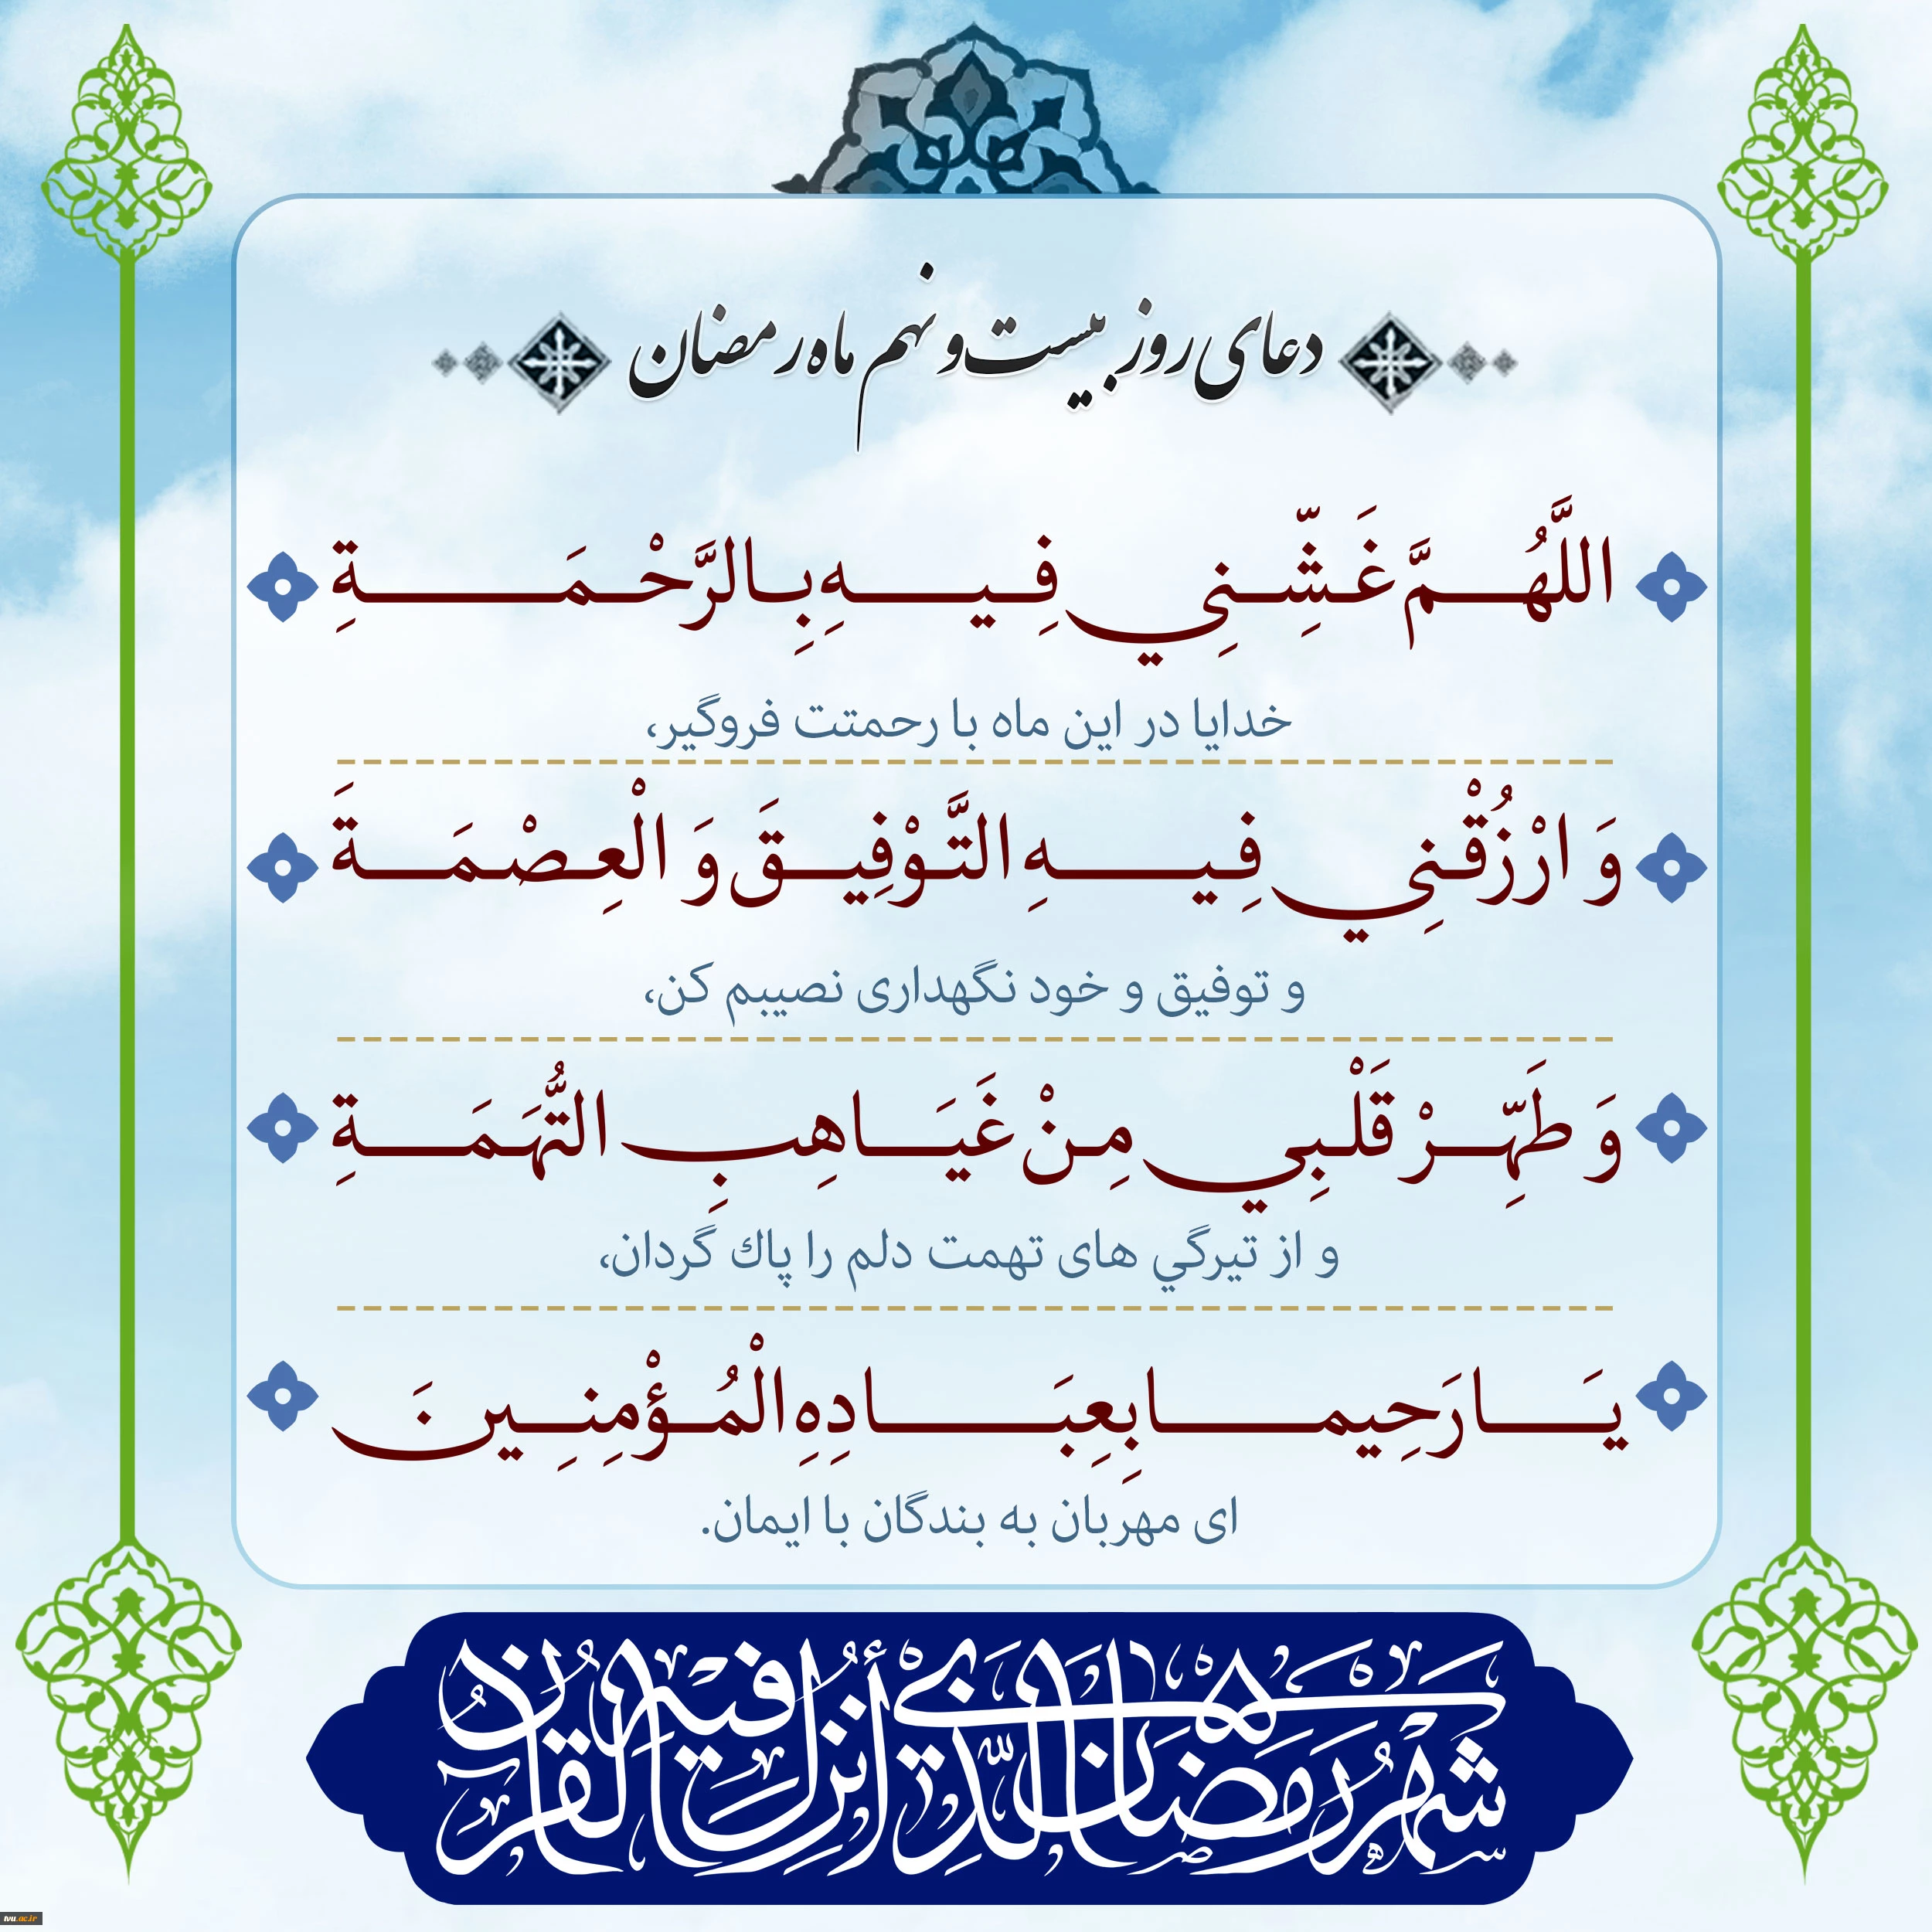 دعای روز بیست و نهم ماه رمضان
اللَّهُمَّ غَشِّنِي فِيهِ بِالرَّحْمَةِ
خدایا در این ماه با رحمتت فروگیر،
وَ ارْزُقْنِي فِيهِ التَّوْفِيقَ وَ الْعِصْمَةَ
و توفیق و خود نگهداری نصیبم کن،
وَ طَهِّرْ قَلْبِي مِنْ غَيَاهِبِ التُّهَمَةِ
و از تیرگي های تهمت دلم را پاك گردان،
يَا رَحِيما بِعِبَادِهِ الْمُؤْمِنِينَ
ای مهربان به بندگان با ایمان.
شهر رمضان الذي أنزل فيه القرآن
ivu.ac.ir